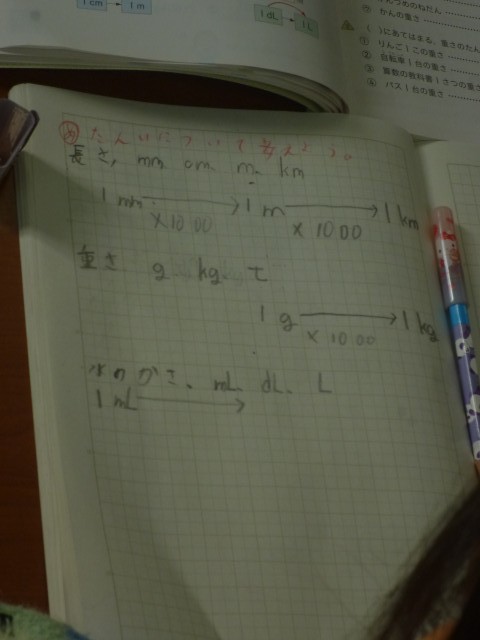 1cm → 1m
1dL 1L
かんの重さ
( )にあてはまる、重さのたん
① りんご1この重さ
② 自転車1台の重さ
③ 算数の教科書1さつの重さ
④ バス1台の重さ
め たんいについて考えよう。
長さ、mm cm m km
1mm → 1m → 1km
×1000 ×1000
重さ g kg t
1g → 1kg
×1000
水のかさ、mL dL L
1mL →